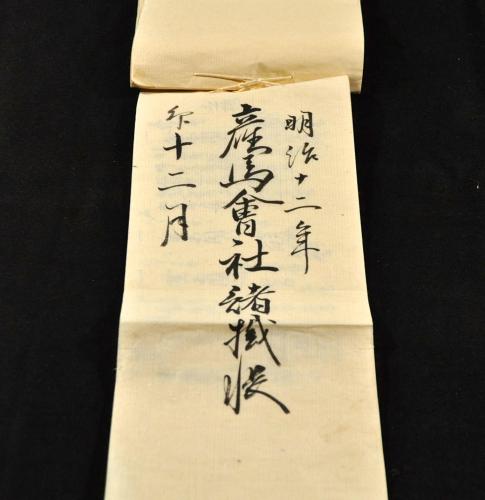 明治十二年
産馬會社諸
卯十二月